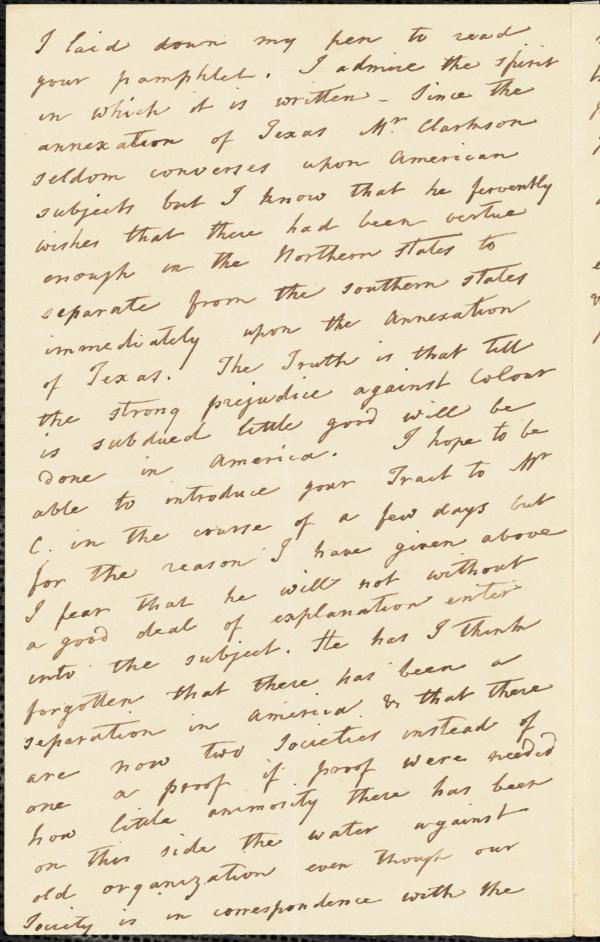 I laid down my pen to read
your pamphlet. I admire the spirit
in which it is written - Since the
annexation of Texas Mr Clarkson
seldom converses upon American
subjects but I know that he fervently
wishes that there had been virtue
enough in the Northern states to
separate from the southern states
immediately upon the Annexation
of Texas. The Truth is that till
the strong prejudice against Colour
is subdued little good will be
done in America. I hope to be
able to introduce your Tract to Mr
C. in the course of a few days but
for the reason I have given above
I fear that he will not without
a good deal of explanation enter
into the subject. He has I think
forgotten that there has been a
separation in America & that there
are now two Societies instead of
one a proof if proof were needed
how little animosity there has been
on this side the water against
old organization even though our
Society is in correspondence with the